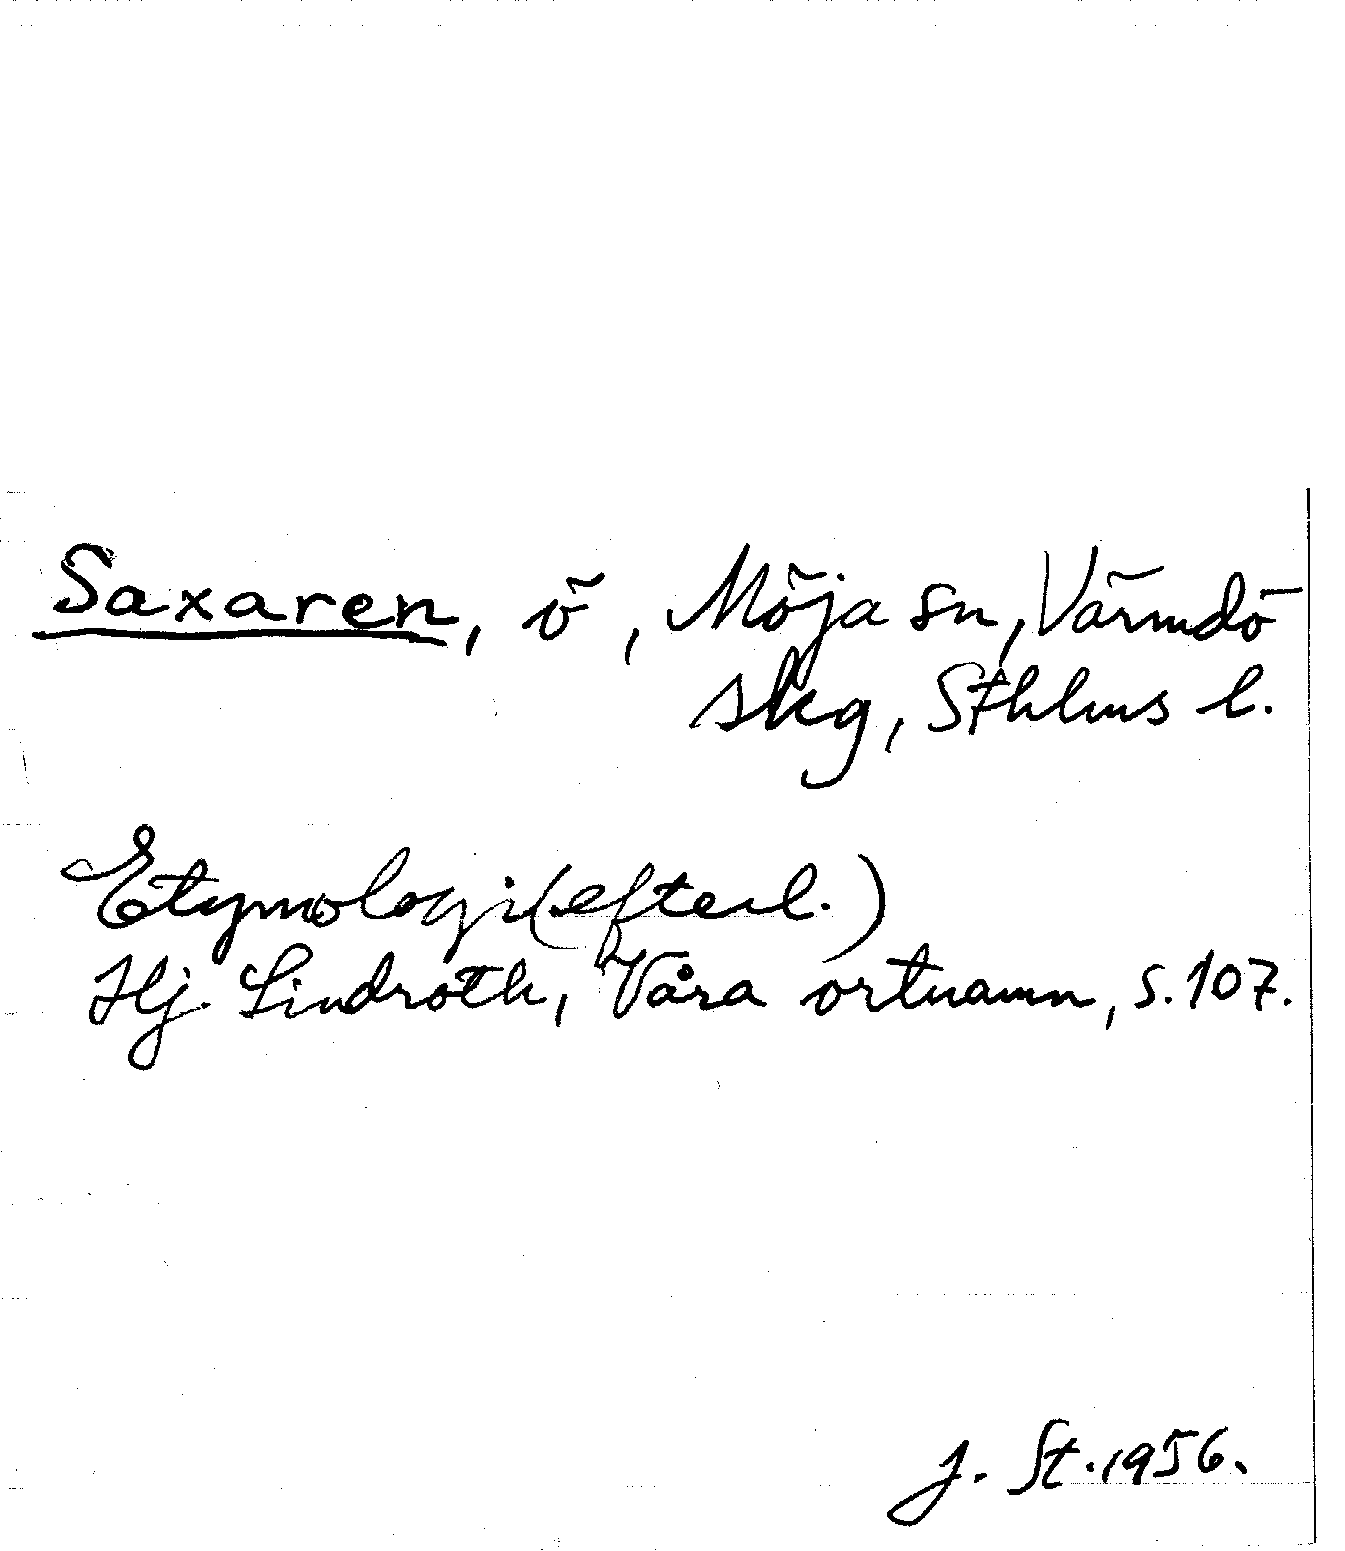 Saxaren, ö, Möja sn, Värmdö
skg, Sthlms l.
Etymologi (efterl.)
Hj. Lindroth, Våra ortnamn, s. 107.
J. St. 1956.